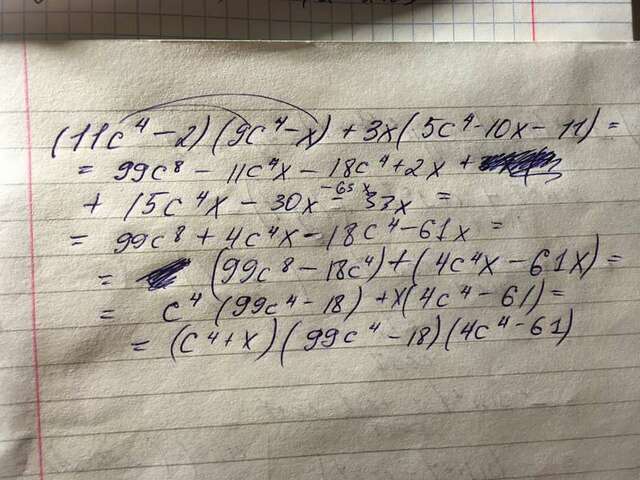 (11c⁴ - 2)(9c⁴ - x) + 3x(5c⁴ - 10x - 11) =
= 99c⁸ - 11c⁴x - 18c⁴ + 2x +
+ 15c⁴x - 30x - 33x =
-63x
= 99c⁸ + 4c⁴x - 18c⁴ - 61x =
= (99c⁸ - 18c⁴) + (4c⁴x - 61x) =
= c⁴(99c⁴ - 18) + x(4c⁴ - 61) =
= (c⁴ + x)(99c⁴ - 18)(4c⁴ - 61)